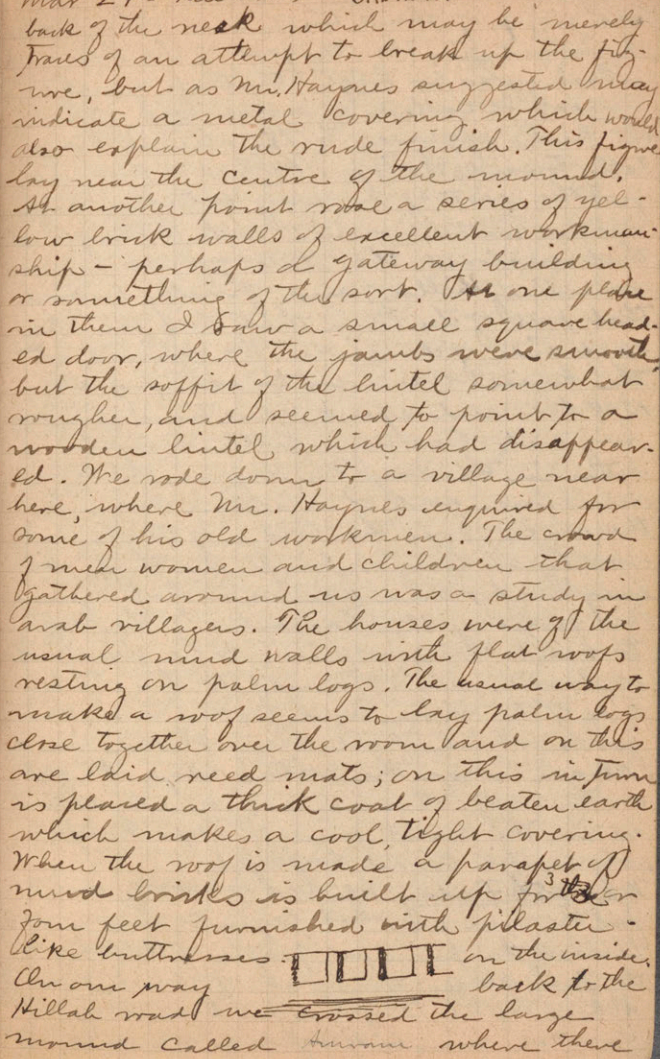 back of the neck which may be merely
traces of an attempt to break up the fig-
ure, but as Mr. Haynes suggested may
indicate a metal covering which would
also explain the rude finish. This figure
lay near the centre of the mound.
At another point rose a series of yel-
low brick walls of excellent workman-
ship - perhaps a gateway building
or something of the sort. At one place
in them I saw a small square head-
ed door, where the jambs were smooth,
but the soffit of the lintel somewhat
rougher, and seemed to point to a
wooden lintel which had disappear-
ed. We rode down to a village near
here, where Mr. Haynes enquired for
some of his old workmen. The crowd
of men women and children that
gathered around us was a study in
arab villagers. The houses were of the
usual mud walls with flat roofs
resting on palm logs. The usual way to
make a roof seems to lay palm logs
close together over the room and on this
are laid reed mats; on this in turn
is placed a thick coat of beaten earth
which makes a cool, tight covering.
When the roof is made a parapet of
mud bricks is built up for 3 or
four feet furnished with pilaster-
like buttresses on the inside.
On our way back to the
Hillah road we crossed the large
mound called Amram where there